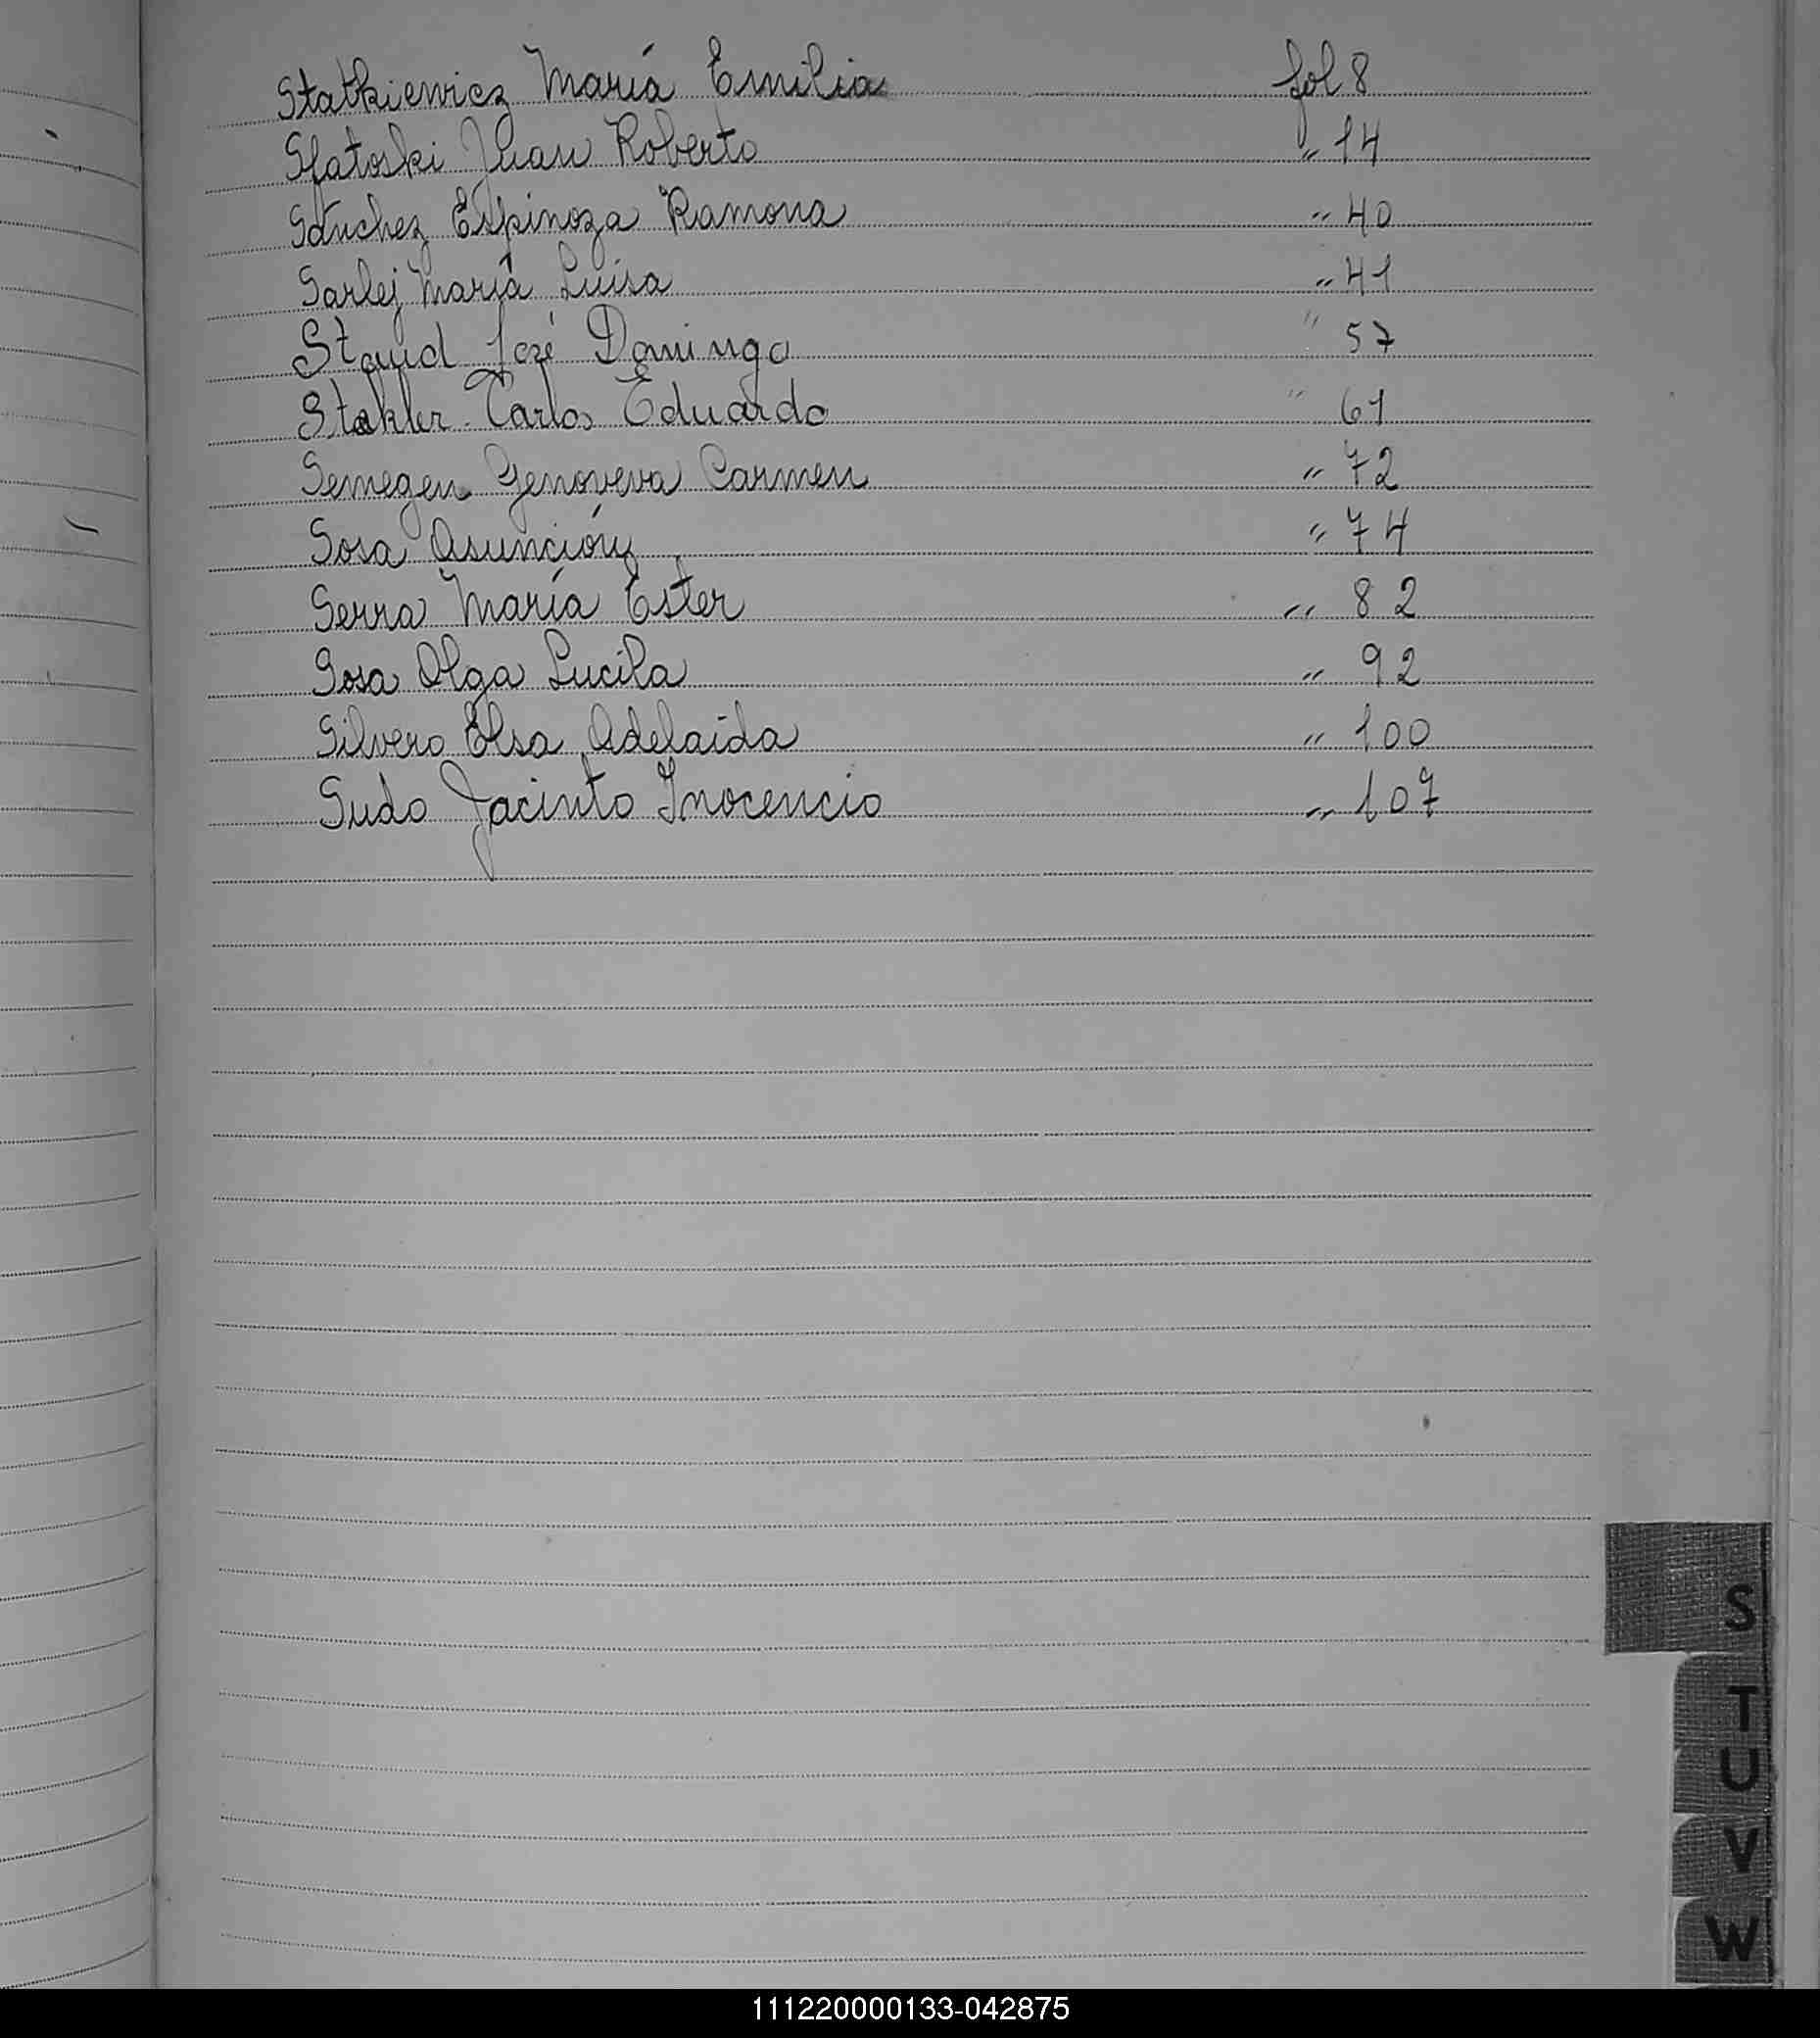 Statkiewicz María Emilia fol 8
Sfatoski Juan Roberto " 14
Sánchez Espinoza Ramona " 40
Sarlej María Luisa " 41
Staud José Domingo " 57
Stakler Carlos Eduardo " 61
Semegen Genoveva Carmen " 72
Sosa Asunción " 74
Serra María Ester " 82
Sosa Olga Lucila " 92
Silvero Elsa Adelaida " 100
Sudo Jacinto Inocencio " 107
S
T
U
V
W
111220000133-042875